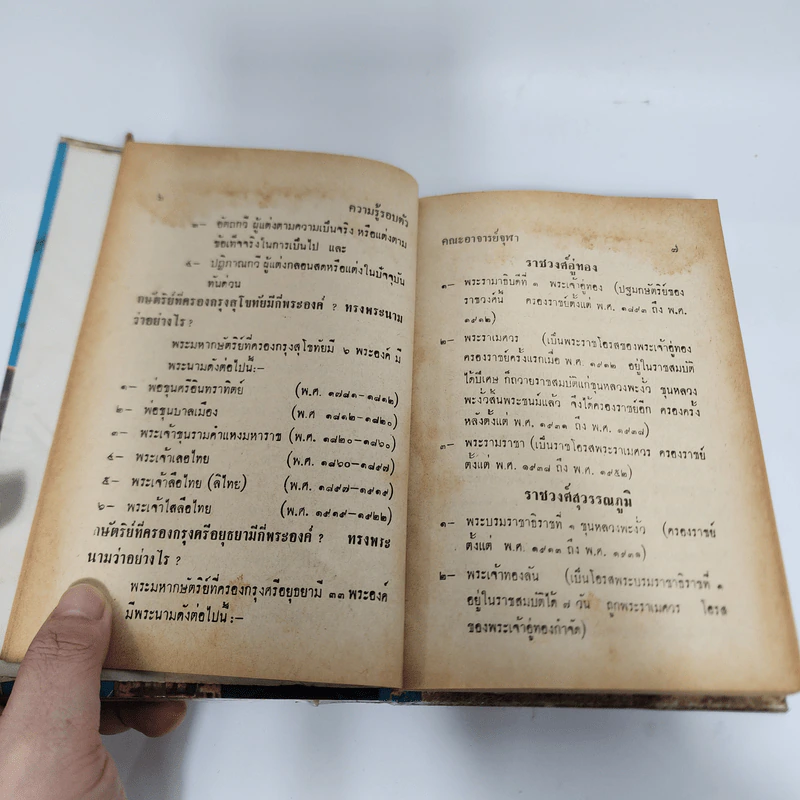 ๖
ความรู้รอบตัว
๓– อัตถกวี ผู้แต่งตามความเป็นจริง หรือแต่งตาม
ข้อเท็จจริงในการเป็นไป และ
๔– ปฏิภาณกวี ผู้แต่งกลอนสดหรือแต่งในปัจจุบัน
ทันด่วน
กษัตริย์ที่ครองกรุงสุโขทัยมีกี่พระองค์ ? ทรงพระนาม
ว่าอย่างไร ?
พระมหากษัตริย์ที่ครองกรุงสุโขทัยมี ๖ พระองค์ มี
พระนามดังต่อไปนี้:–
๑– พ่อขุนศรีอินทราทิตย์ (พ.ศ. ๑๗๘๑–๑๘๑๒)
๒– พ่อขุนบาลเมือง (พ.ศ ๑๘๑๒–๑๘๒๐)
๓– พระเจ้าขุนรามคำแหงมหาราช (พ.ศ. ๑๘๒๐–๑๘๖๐)
๔– พระเจ้าเลอไทย (พ.ศ. ๑๘๖๐–๑๘๙๗)
๕– พระเจ้าลือไทย (ลิไทย) (พ.ศ. ๑๘๙๗–๑๙๑๙)
๖– พระเจ้าไสลือไทย (พ.ศ. ๑๙๑๙–๑๙๒๒)
กษัตริย์ที่ครองกรุงศรีอยุธยามีกี่พระองค์ ? ทรงพระ
นามว่าอย่างไร ?
พระมหากษัตริย์ที่ครองกรุงศรีอยุธยามี ๓๓ พระองค์
มีพระนามดังต่อไปนี้:–
คณะอาจารย์จุฬา
๗
ราชวงศ์อู่ทอง
๑– พระรามาธิบดีที่ ๑ พระเจ้าอู่ทอง (ปฐมกษัตริย์ของ
ราชวงค์นี้ ครองราชย์ตั้งแต่ พ.ศ. ๑๘๙๓ ถึง พ.ศ.
๑๙๑๒)
๒– พระราเมศวร (เป็นพระราชโอรสของพระเจ้าอู่ทอง
ครองราชย์ครั้งแรกเมื่อ พ.ศ. ๑๙๑๒ อยู่ในราชสมบัติ
ได้ปีเศษ ก็ถวายราชสมบัติแก่ขุนหลวงพะงั่ว ขุนหลวง
พะงั่วสิ้นพระชนม์แล้ว จึงได้ครองราชย์อีก ครองครั้ง
หลังตั้งแต่ พ.ศ. ๑๙๓๑ ถึง พ.ศ. ๑๙๓๘)
๓– พระรามราชา (เป็นราชโอรสพระราเมศวร ครองราชย์
ตั้งแต่ พ.ศ. ๑๙๓๘ ถึง พ.ศ. ๑๙๕๒)
ราชวงศ์สุวรรณภูมิ
๑– พระบรมราชาธิราชที่ ๑ ขุนหลวงพะงั่ว (ครองราชย์
ตั้งแต่ พ.ศ. ๑๙๑๓ ถึง พ.ศ. ๑๙๓๑)
๒– พระเจ้าทองลัน (เป็นโอรสพระบรมราชาธิราชที่ ๑
อยู่ในราชสมบัติได้ ๗ วัน ถูกพระราเมศวร โอรส
ของพระเจ้าอู่ทองกำจัด)